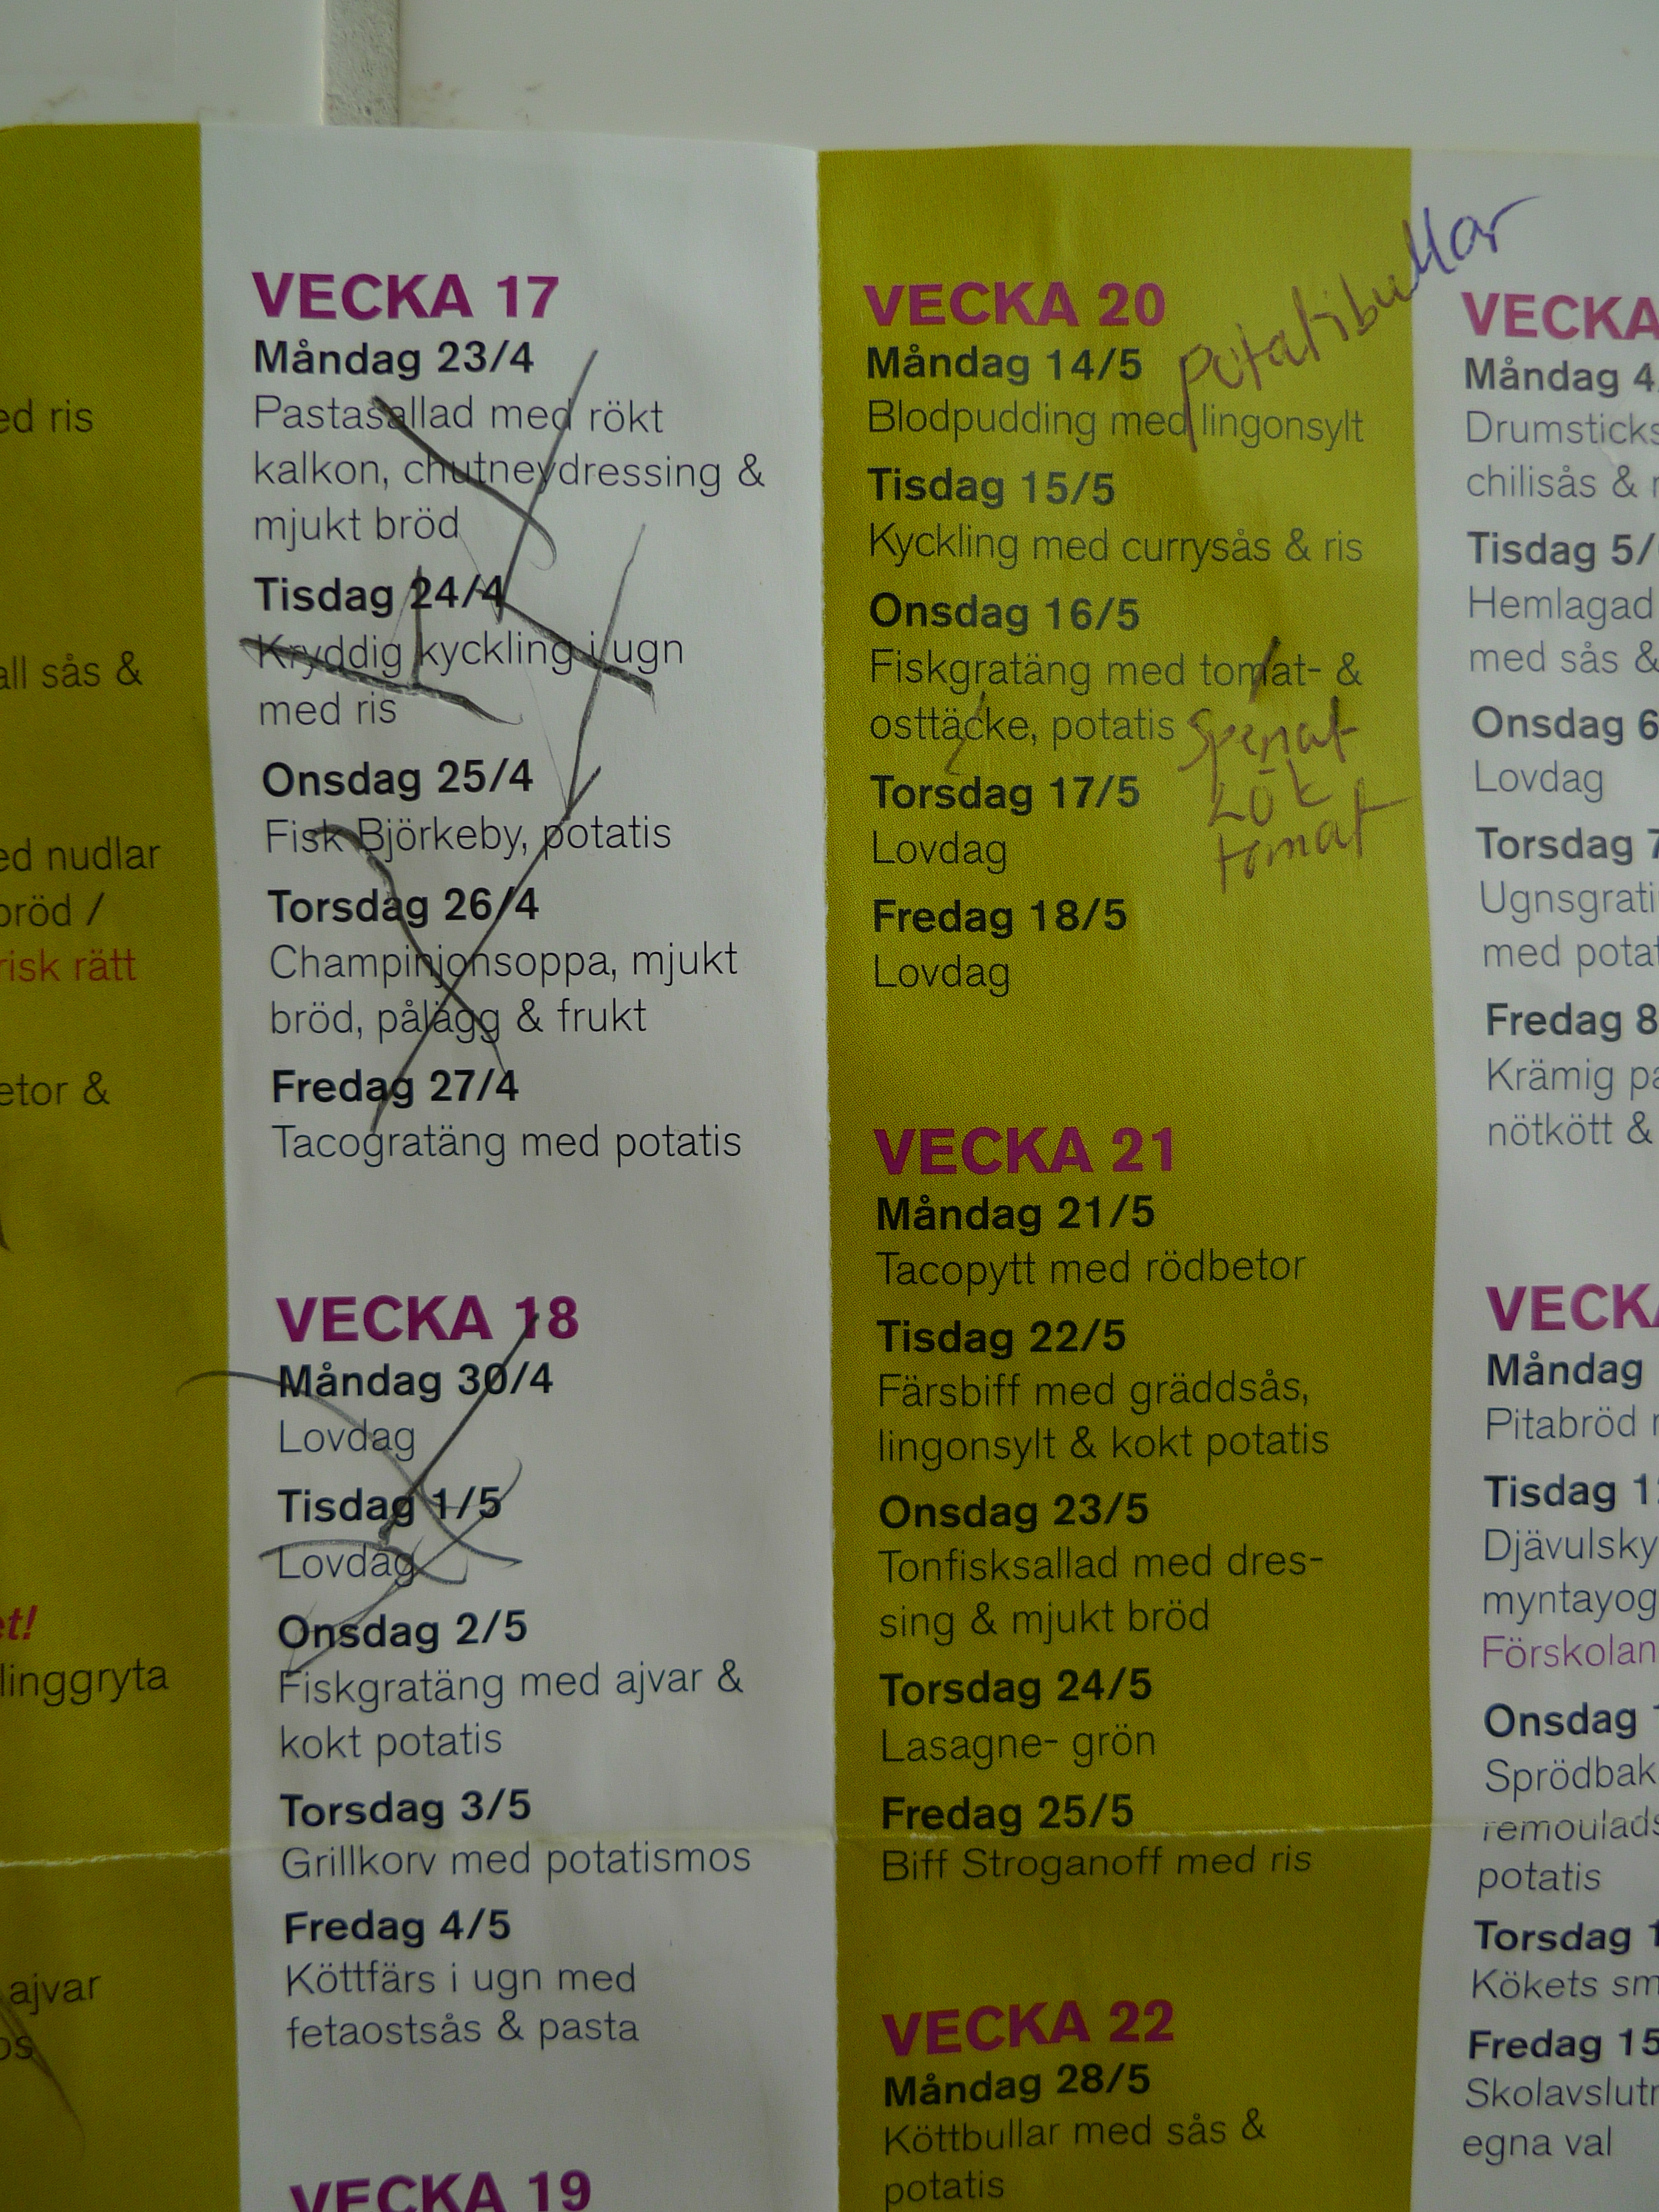 ed ris
all sås &
ed nudlar
bröd /
risk rätt
etor &
et!
linggryta
ajvar
os
VECKA 17
Måndag 23/4
Pastasallad med rökt
kalkon, chutneydressing &
mjukt bröd
Tisdag 24/4
Kryddig kyckling i ugn
med ris
Onsdag 25/4
Fisk Björkeby, potatis
Torsdag 26/4
Champinjonsoppa, mjukt
bröd, pålägg & frukt
Fredag 27/4
Tacogratäng med potatis
VECKA 18
Måndag 30/4
Lovdag
Tisdag 1/5
Lovdag
Onsdag 2/5
Fiskgratäng med ajvar &
kokt potatis
Torsdag 3/5
Grillkorv med potatismos
Fredag 4/5
Köttfärs i ugn med
fetaostsås & pasta
VECKA 19
VECKA 20
potatibullar
Måndag 14/5
Blodpudding med lingonsylt
Tisdag 15/5
Kyckling med currysås & ris
Onsdag 16/5
Fiskgratäng med tomat- &
osttäcke, potatis
Spenat
Lök
tomat
Torsdag 17/5
Lovdag
Fredag 18/5
Lovdag
VECKA 21
Måndag 21/5
Tacopytt med rödbetor
Tisdag 22/5
Färsbiff med gräddsås,
lingonsylt & kokt potatis
Onsdag 23/5
Tonfisksallad med dres-
sing & mjukt bröd
Torsdag 24/5
Lasagne- grön
Fredag 25/5
Biff Stroganoff med ris
VECKA 22
Måndag 28/5
Köttbullar med sås &
potatis
VECKA
Måndag 4
Drumsticks
chilisås &
Tisdag 5/
Hemlagad
med sås &
Onsdag 6
Lovdag
Torsdag 7
Ugnsgrati
med potat
Fredag 8
Krämig pa
nötkött &
VECKA
Måndag
Pitabröd
Tisdag 1
Djävulsky
myntayog
Förskolan
Onsdag 1
Sprödbak
remoulads
potatis
Torsdag 1
Kökets sm
Fredag 15
Skolavslutn
egna val